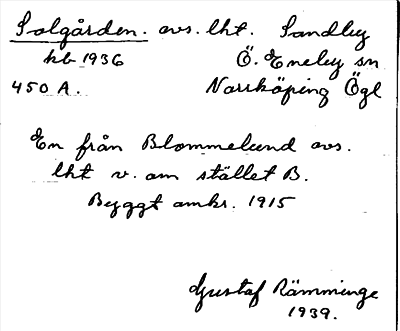 Solgården. avs. lht. Sandby
kb 1936 Ö. Eneby sn
450 A. Norrköping Ögl
En från Blommelund avs.
lht v. om stället B.
Byggt omkr. 1915
Gustaf Rämminge
1939.